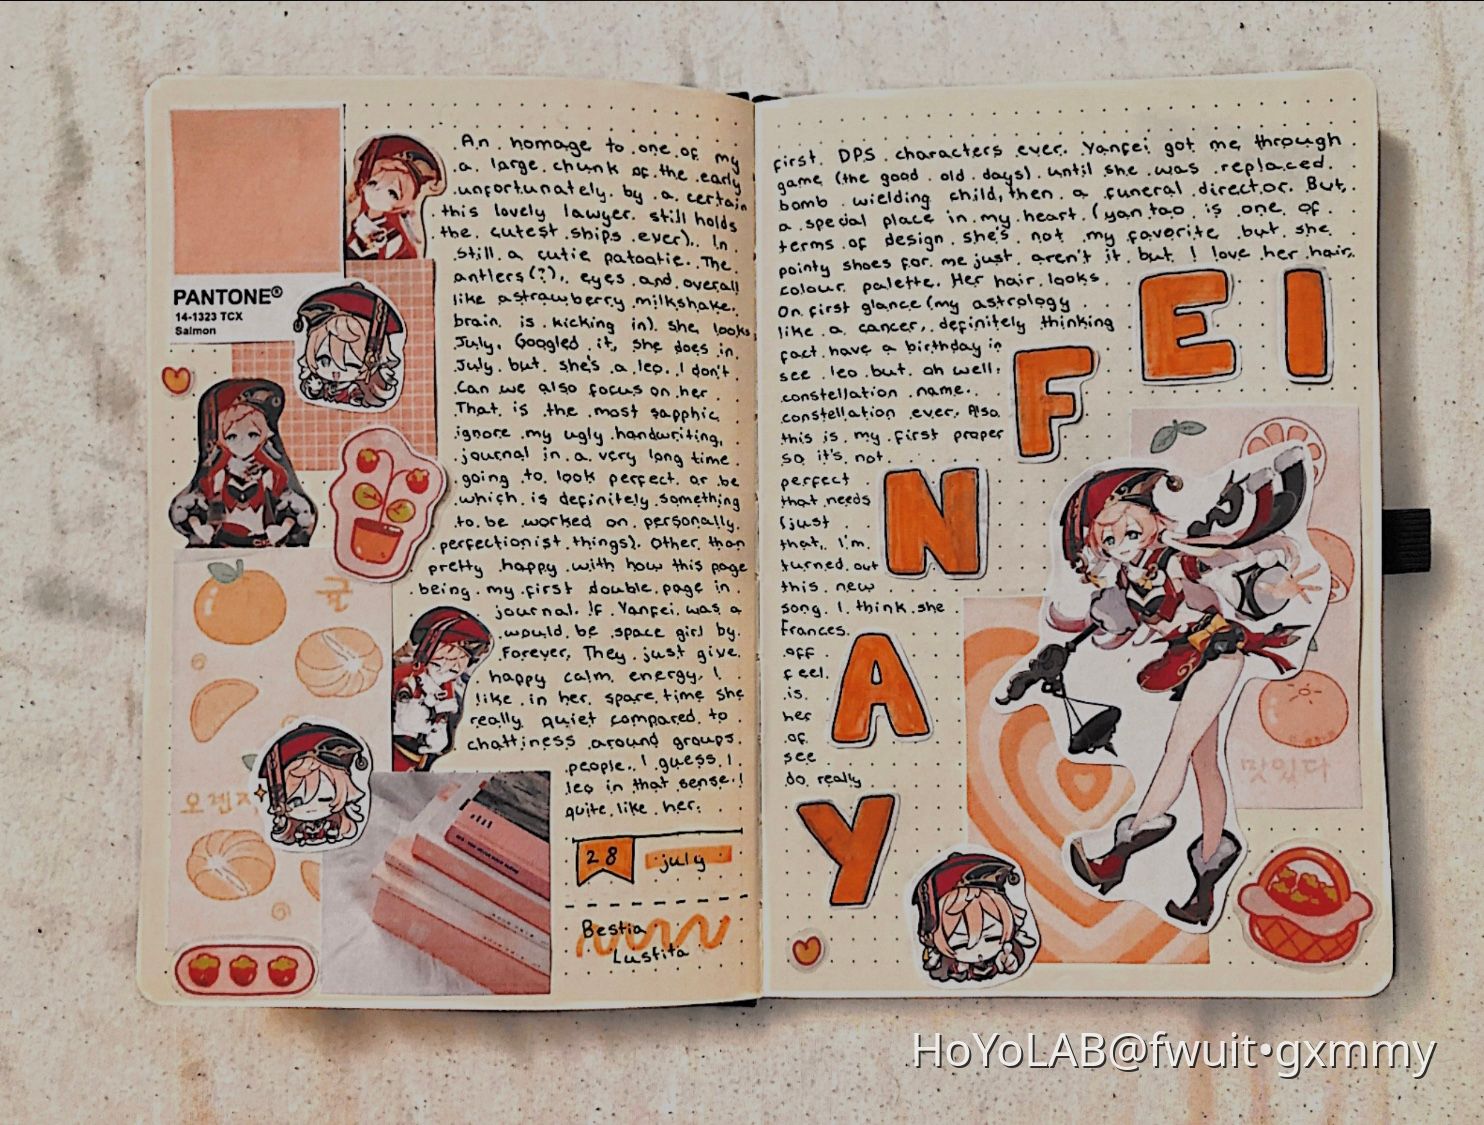 PANTONE®
14-1323 TCX
Salmon
An homage to one of my first DPS characters ever. Yanfei got me through
a large chunk of the early game (the good old days) until she was replaced
unfortunately by a certain bomb wielding child, then a funeral director. But
this lovely lawyer still holds a special place in my heart. (yantao is one of
the cutest ships ever). In terms of design she's not my favorite but she
still a cutie patootie. The pointy shoes for me just aren't it but I love her hair,
antlers(?), eyes and overall colour palette. Her hair looks
like a strawberry milkshake. On first glance (my astrology
brain is kicking in) she looks like a cancer, definitely thinking
July. Googled it, she does in fact have a birthday in
July but she's a leo. I don't see leo but oh well.
Can we also focus on her constellation name.
That is the most sapphic constellation ever. Also
ignore my ugly handwriting, this is my first proper
journal in a very long time so it's not
going to look perfect or be perfect
which is definitely something that needs
to be worked on personally. (just
perfectionist things). Other than that, I'm
pretty happy with how this page turned out
being my first double page in this new
journal. If Yanfei was a song I think she
would be space girl by Frances
Forever. They just give off
happy calm energy. I feel
like in her spare time she is
really quiet compared to her
chattiness around groups of
people. I guess I see
leo in that sense. I do really
quite like her.
귤
오렌지
28 july
Bestia
Iustita
YANFEI
맛있다
HoYoLAB@fwuit•gxmmy